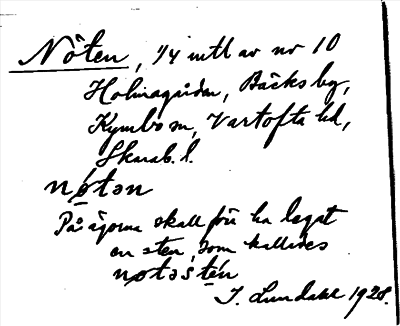 Nöten, 1/4 mtl av nr 10
Holmagården, Bäcks by,
Kymbo sn, Vartofta hd,
Skarab. l.
nøtən
På ägorna skall förr ha legat
en sten, som kallades
nøtəstén
J. Lundahl 1928.